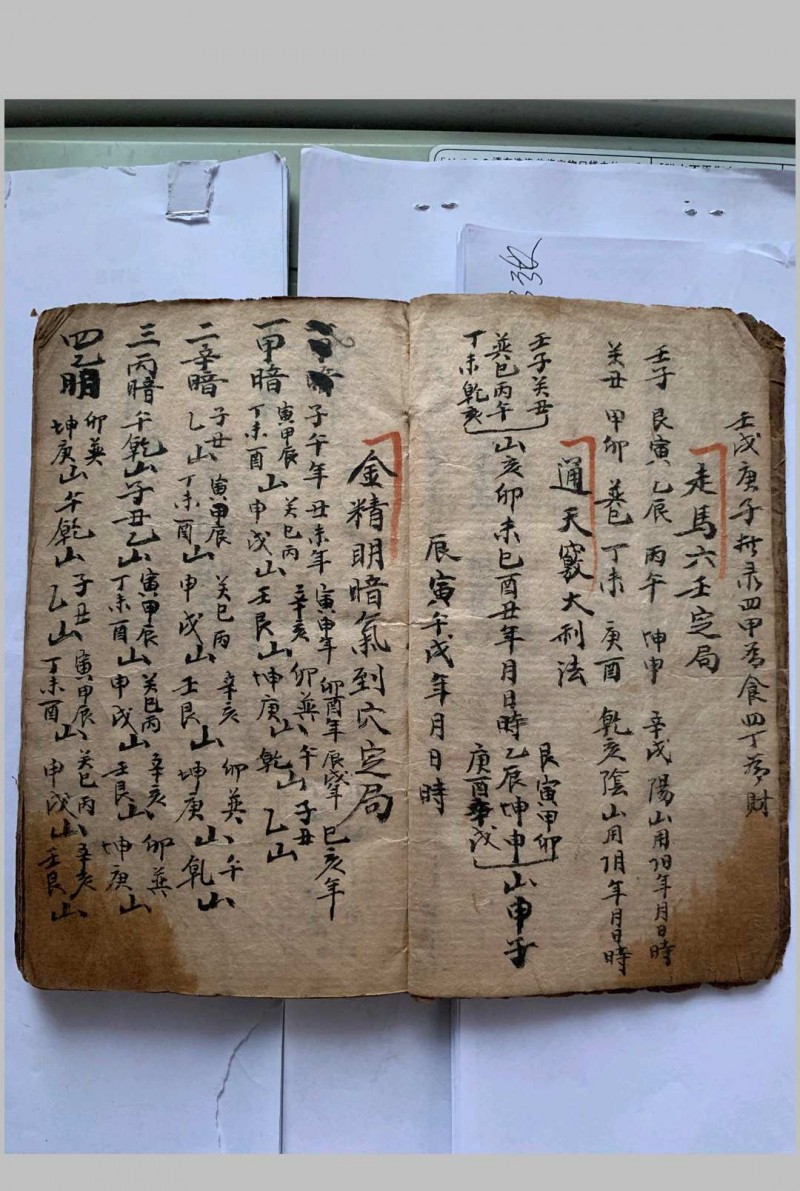 壬戌庚子
四甲為食四丁為財
走馬六壬定局
壬子 艮寅 乙辰 丙午 坤申 辛戌陽山用阳年月日時
癸丑 甲卯 巽巳 丁未 庚酉 乾亥陰山用阴年月日時
通天竅大利法
壬子癸丑
巽巳丙午
丁未乾亥
山亥卯未巳酉丑年月日時
艮寅甲卯
乙辰坤申
庚酉辛戌
山申子
辰寅午戌年月日時
金精明暗氣到穴定局
子午年 丑未年 寅申年 卯酉年 辰戌年 巳亥年
一甲暗 寅甲辰 丁未酉山 申戌山 癸巳丙 壬艮山 辛亥 坤庚山 卯巽 乾山 午 子丑 乙山
二辛暗 子丑 乙山 寅甲辰 丁未酉山 申戌山 癸巳丙 壬艮山 辛亥 坤庚山 卯巽 乾山 午
三丙暗 午乾山 子丑乙山 寅甲辰 丁未酉山 申戌山 癸巳丙 壬艮山 辛亥 坤庚山 卯巽
四乙明 卯巽 坤庚山 午乾山 子丑 乙山 寅甲辰 丁未酉山 癸巳丙 申戌山 辛亥 壬艮山